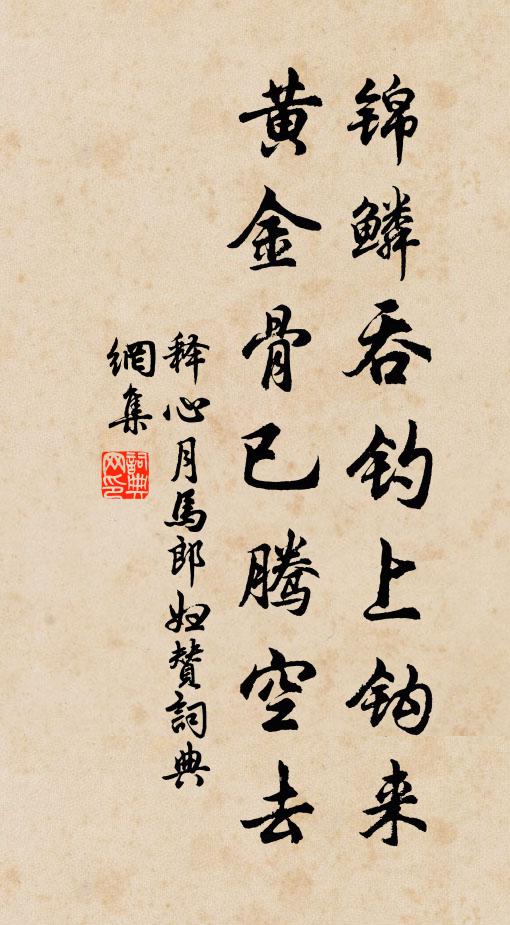 锦鳞吞钓上钩来
黄金骨已腾空去
释心月馬郎妇赞詞典
網集
詞典
网印